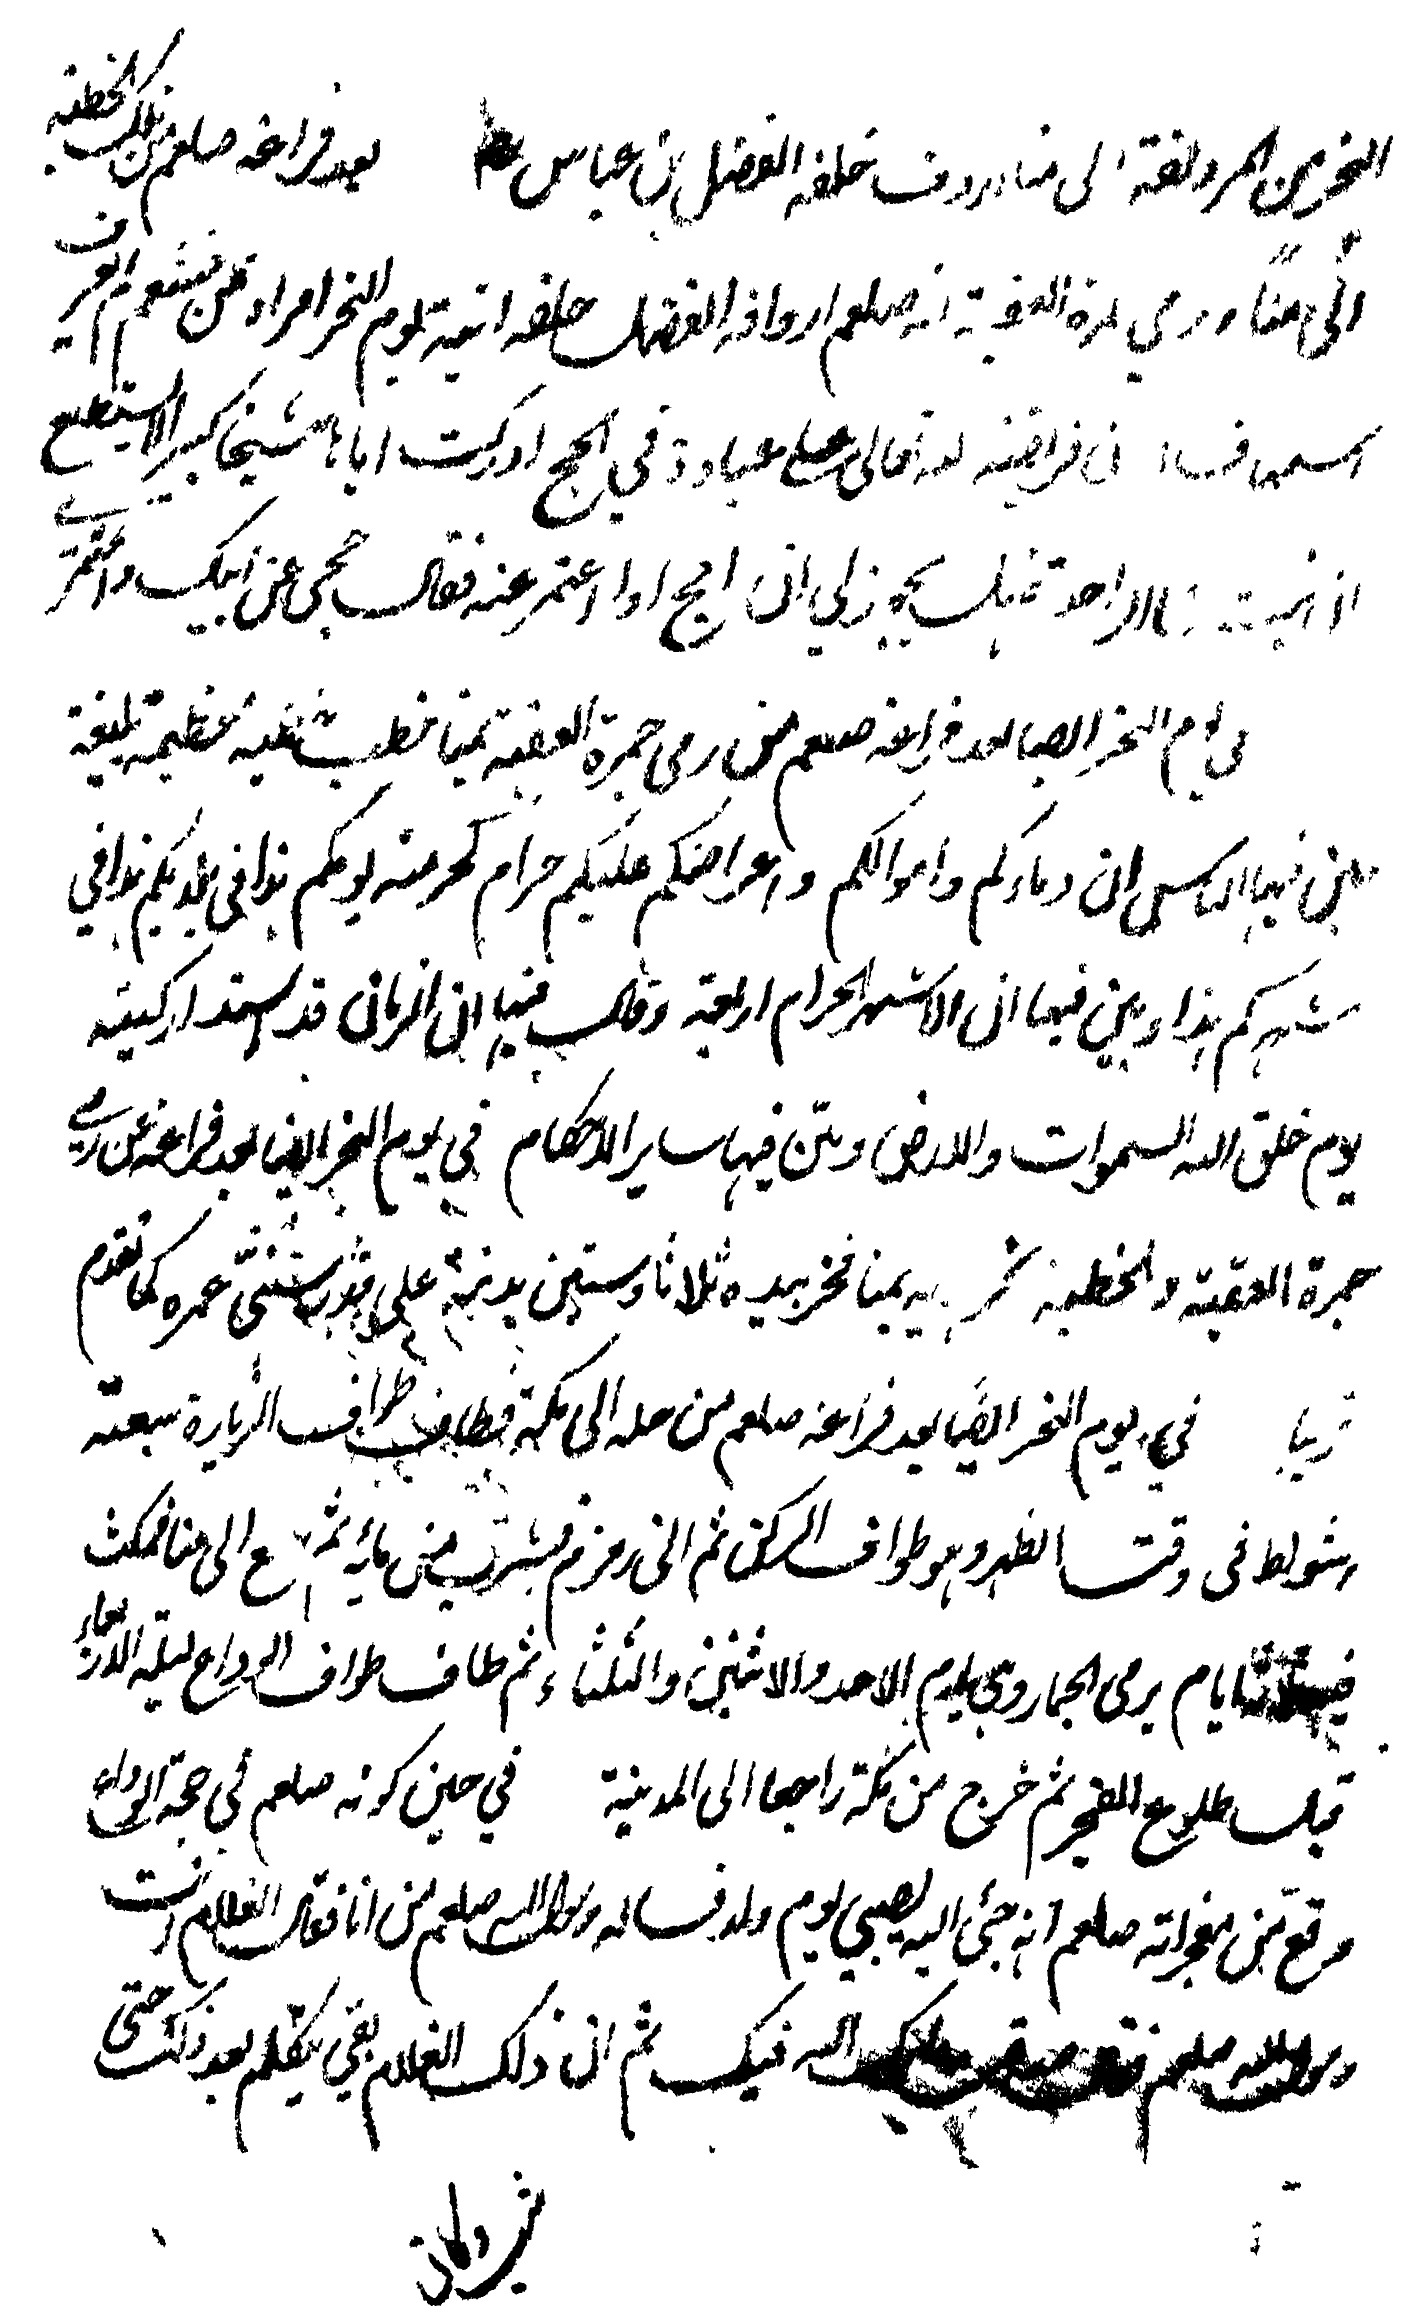 النحر من المزدلفة الى منا اردف خلفه الفضل بن عباس بعد فراغه صلعم من تلك الخطبة
الى منا ورمي جمرة العقبة انه صلعم اردافه الفضل خلفه اتيته يوم النحر امراة من خثعم
ان فريضة لله تعالى على عباده في الحج ادركت اباها شيخا كبيرا لا يستطيع
الراحلة فهل يجوز لي ان احج او اعتمر عنه فقال حجي عن ابيك واعتمر
في يوم النحر ايضا بعد فراغه صلعم من رمي جمرة العقبة بمنا خطب خطبة عظيمة بليغة
بين فيها للناس ان دماءكم واموالكم واعراضكم عليكم حرام كحرمة يومكم هذا في بلدكم هذا في
شهركم هذا وبين فيها ان الاشهر الحرام اربعة وقال فيها ان الزمان قد استدار كهيئته
يوم خلق الله السموات والارض وبين فيها ساير الاحكام في يوم النحر ايضا بعد فراغه عن رمي
جمرة العقبة والخطبة نحر بمنا فنحر بيده ثلاثا وستين بدنة على عمره كما تقدم
قريبا في يوم النحر ايضا بعد فراغه صلعم من حله الى مكة فطاف طواف الزيارة سبعة
اشواط في وقت الظهر وهو طواف الركن ثم اتى زمزم فشرب من مائه ثم رجع الى منا فمكث
فيه ثلاثة ايام يرمي الجمار وهي يوم الاحد والاثنين والثلثاء ثم طاف طواف الوداع ليلة الاربعاء
قبل طلوع الفجر ثم خرج من مكة راجعا الى المدينة في حين كونه صلعم في حجة الوداع
وقع من معجزاته صلعم انه جئ اليه بصبي يوم ولد فساله رسول الله صلعم من انا فقال الغلام انت
رسول الله صلعم فقال صدقت بارك الله فيك ثم ان ذلك الغلام بقي يتكلم بعد ذلك حتى